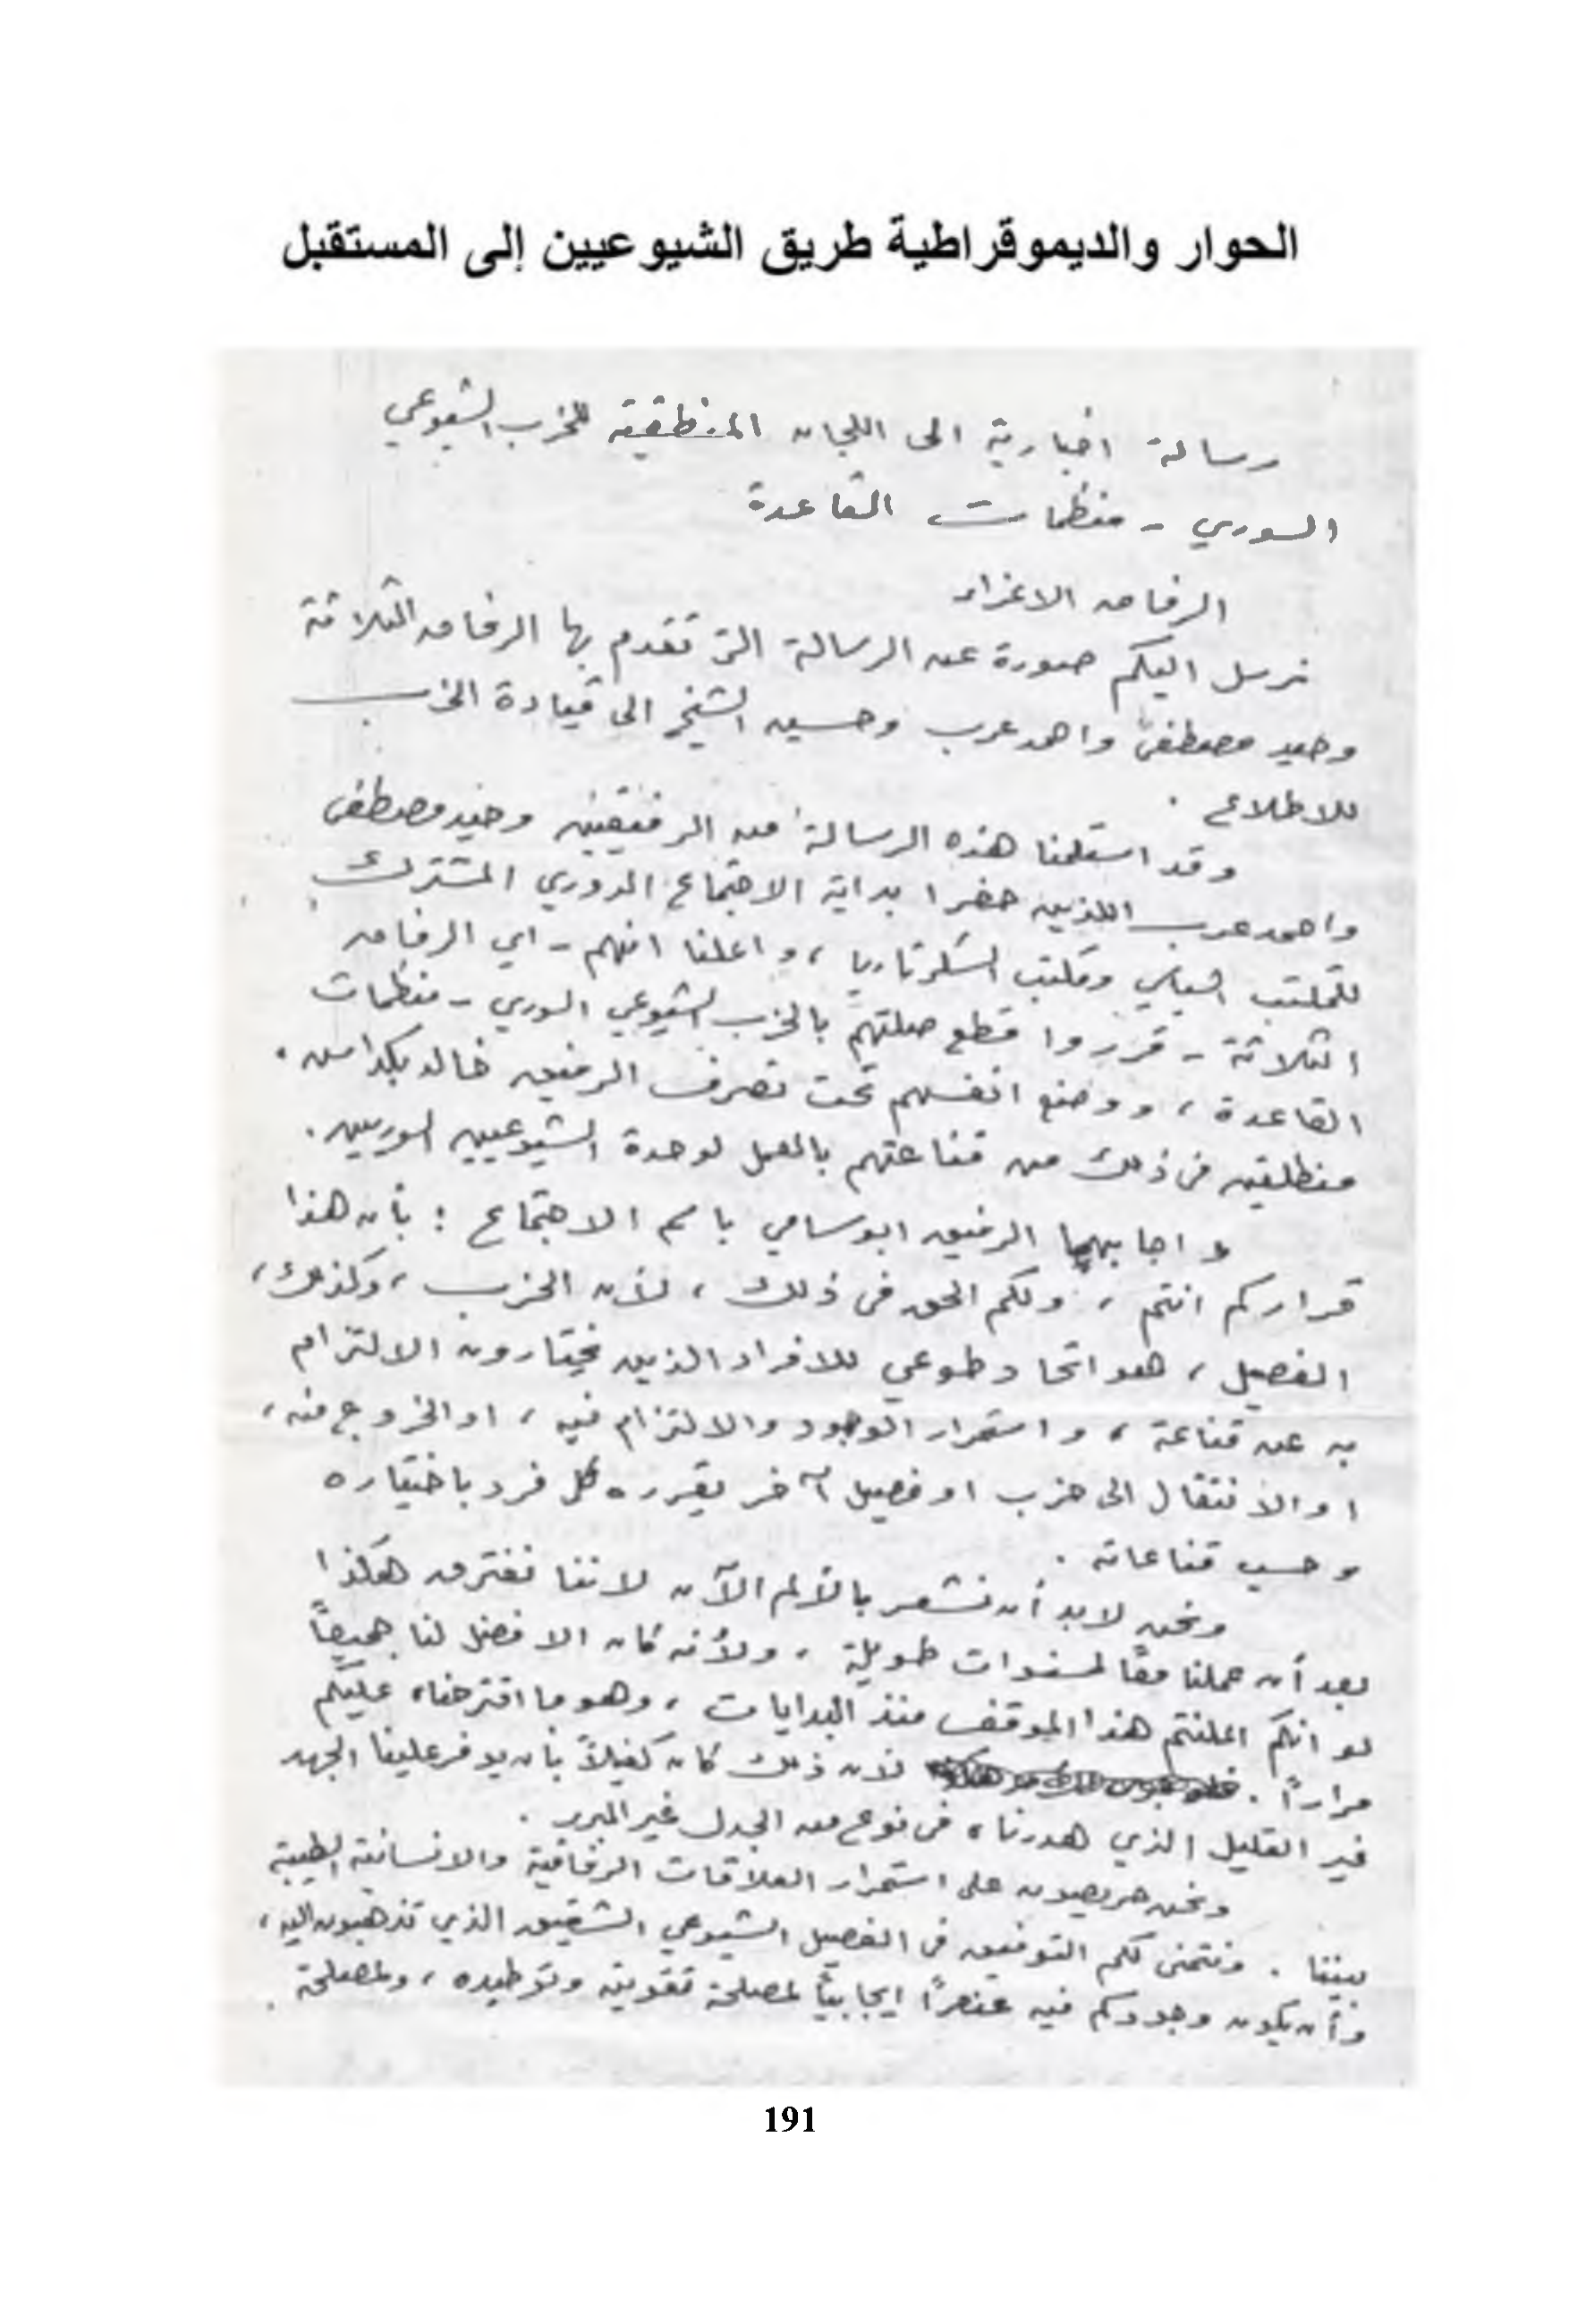 الحوار والديموقراطية طريق الشيوعيين إلى المستقبل
رسالة اخبارية الى اللجان المنطقية للحزب الشيوعي
السوري - منظمات القاعدة
الرفاق الاعزاء
نرسل اليكم صورة عن الرسالة التي تقدم بها الرفاق الثلاثة
وحيد مصطفى واحمد عرب وحسين الشيخ الى قيادة الحزب
للاطلاع .
وقد استلمنا هذه الرسالة من الرفيقين وحيد مصطفى
واحمد عرب اللذين حضرا بداية الاجتماع الدوري المشترك
للمكتب السياسي ومكتب السكرتاريا ، واعلنا انهم - اي الرفاق
الثلاثة - قرروا قطع صلتهم بالحزب الشيوعي السوري - منظمات
القاعدة ، ووضع انفسهم تحت تصرف الرفيق خالد بكداش .
منطلقين في ذلك من قناعتهم بالعمل لوحدة الشيوعيين السوريين .
واجابهما الرفيق ابو سامي باسم الاجتماع : بأن هذا
قراركم انتم ، ولكم الحق في ذلك ، لأن الحزب ، وكذلك ،
الفصيل ، هو اتحاد طوعي للافراد الذين يختارون الالتزام
به عن قناعة ، واستمرار الوجود والالتزام فيه ، او الخروج منه ،
او الانتقال الى حزب او فصيل آخر يقرره كل فرد باختياره
وحسب قناعاته .
ونحن لابد أن نشعر بالألم الآن لاننا نفترق هكذا
بعد أن عملنا معاً لسنوات طويلة ، ولأنه كان الافضل لنا جميعاً
لو انكم اعلنتم هذا الموقف منذ البدايات ، وهو ما اقترحناه عليكم
مراراً . لأن ذلك كان كفيلاً بأن يوفر علينا الجهد
غير القليل الذي هدرناه في نوع من الجدل غير المبرر .
ونحن حريصون على استمرار العلاقات الرفاقية والانسانية الطيبة
بيننا . ونتمنى لكم التوفيق في الفصيل الشيوعي الشقيق الذي تذهبون اليه ،
وأن يكون وجودكم فيه عنصراً ايجابياً لمصلحة تقويته وتوطيده ، ولمصلحة
191